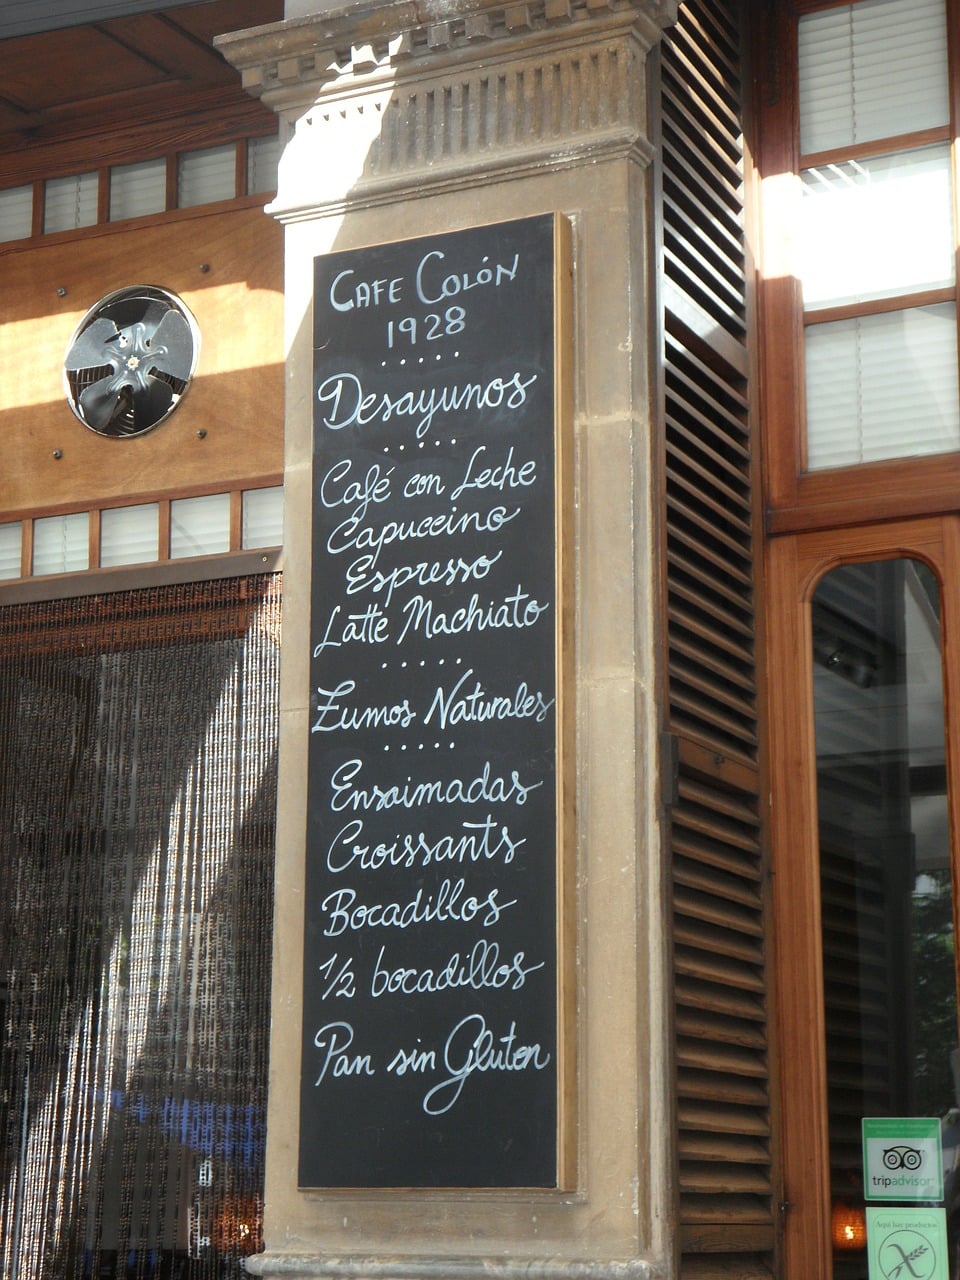 CAFE COLÓN
1928
Desayunos
Café con Leche
Capuccino
Espresso
Latte Machiato
Zumos Naturales
Ensaimadas
Croissants
Bocadillos
1/2 bocadillos
Pan sin Gluten
tripadvisor
Aquí hay productos